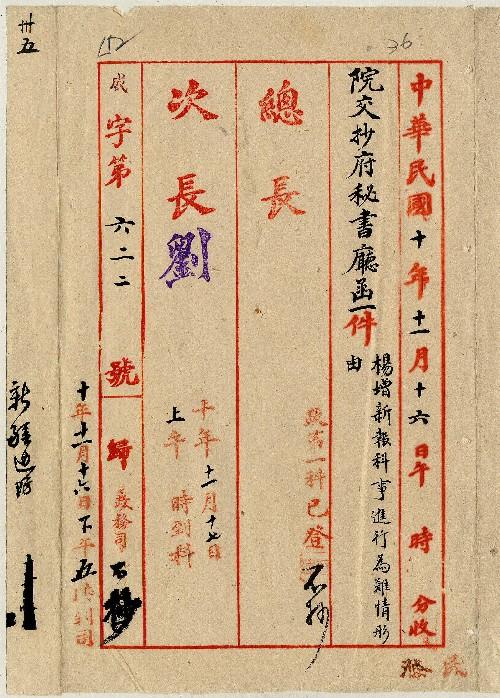 中華民國十年十一月十六日午時分收
院交抄府秘書廳函一件
楊增新報科事進行為難情形
由
總長
政務一科已登
次長劉
十年十一月十七日
上午時到科
咸字第六二二號歸政務司
十年十一月十六日下午五時到司
新疆邊防
卅五
36